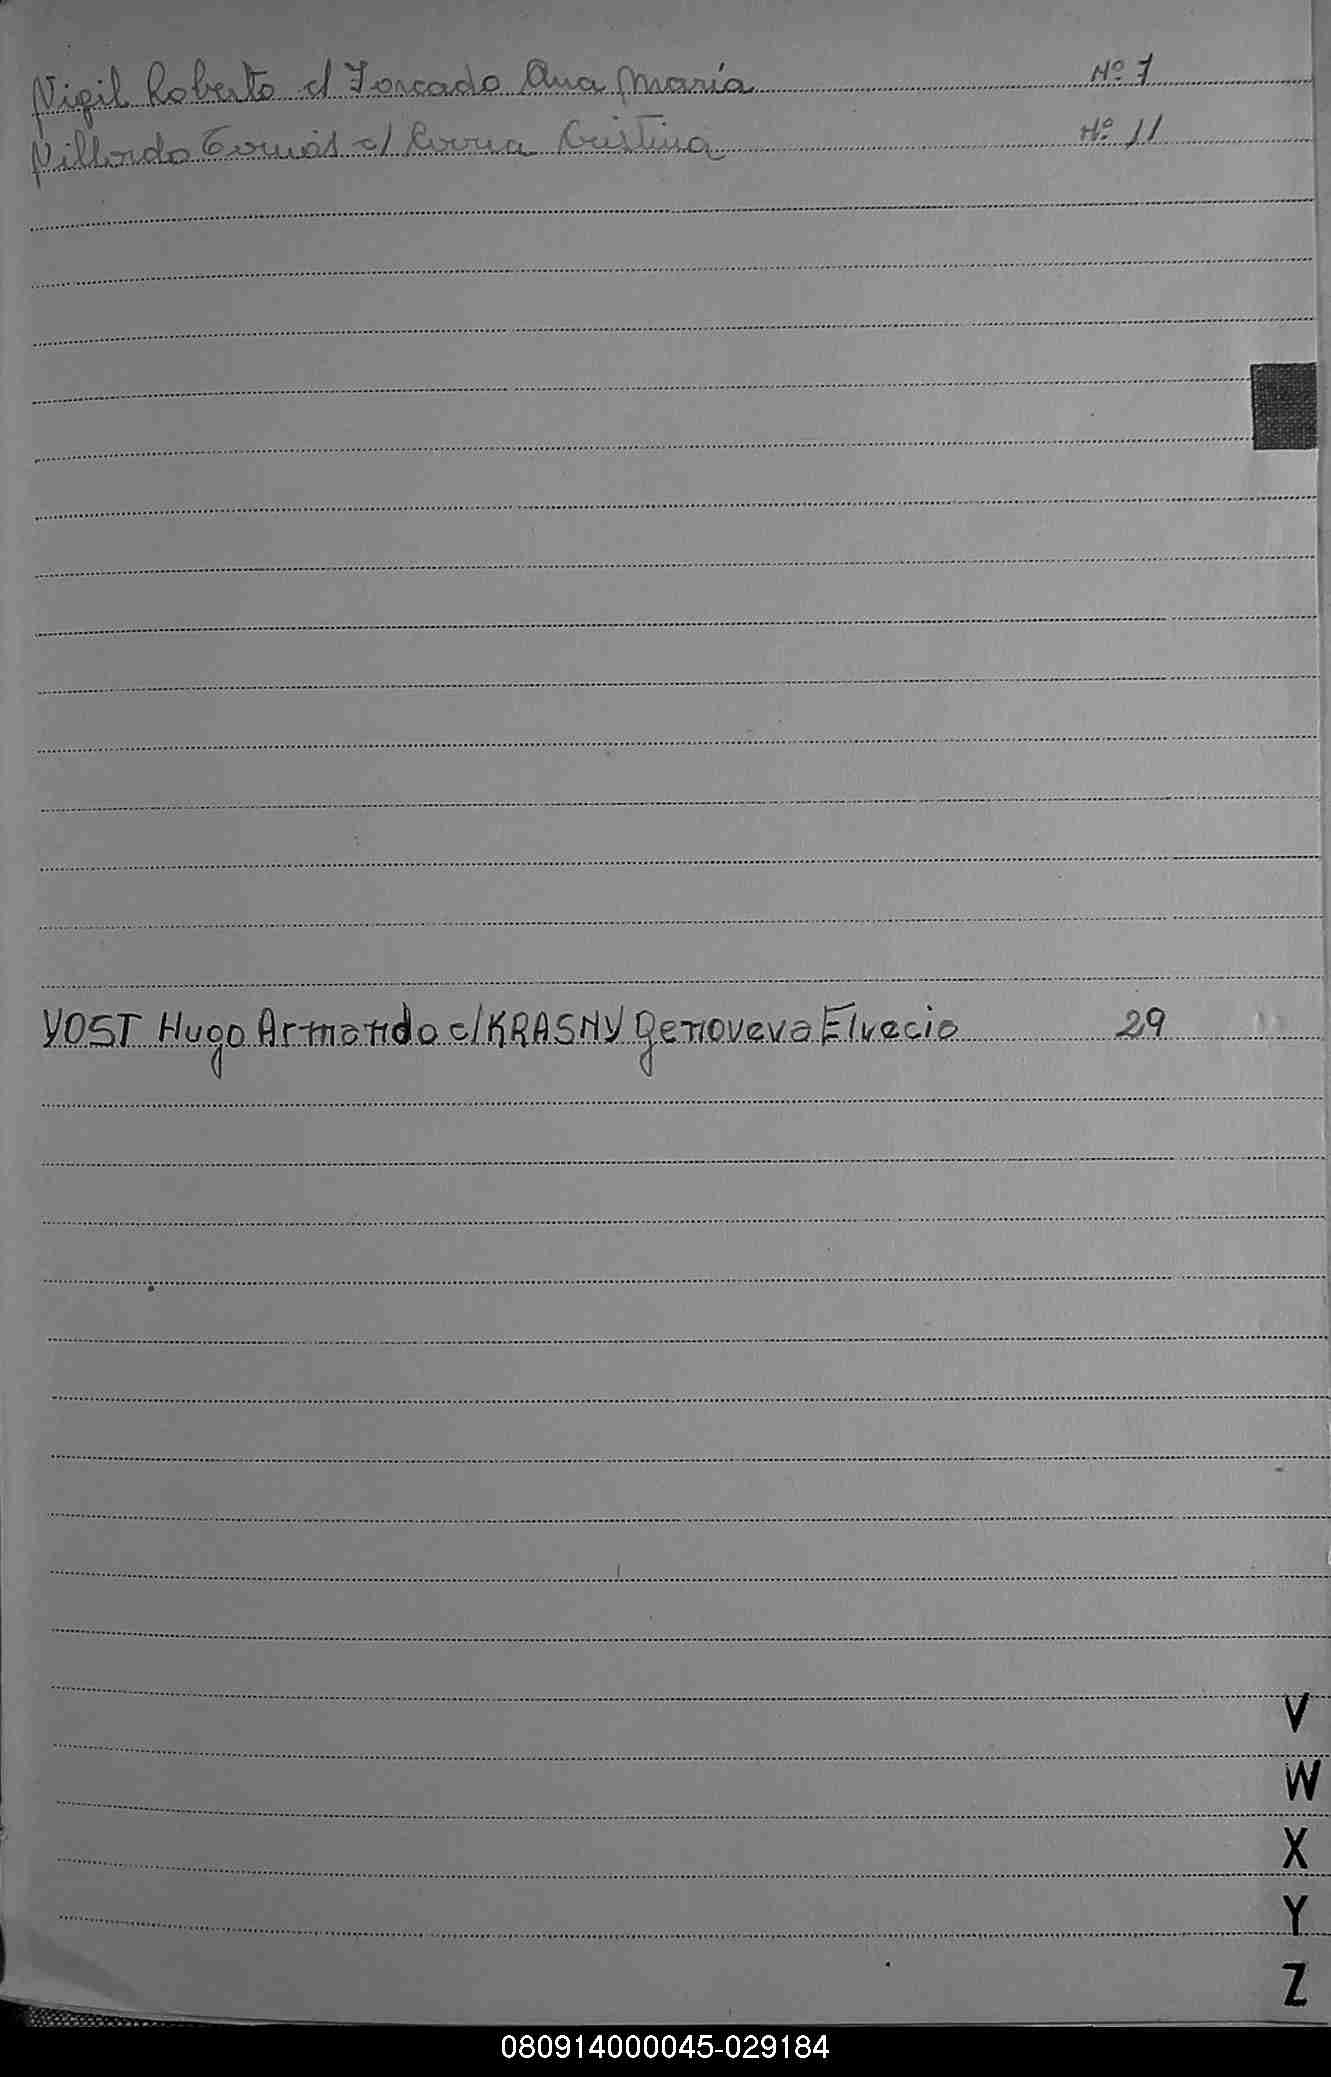 Vigil Roberto c/ Forcado Ana María Nº 7
Villordo Tomás c/ Cristina Nº 11
YOST Hugo Armando c/ KRASNY Genoveva Elvecia 29
V
W
X
Y
Z
080914000045-029184